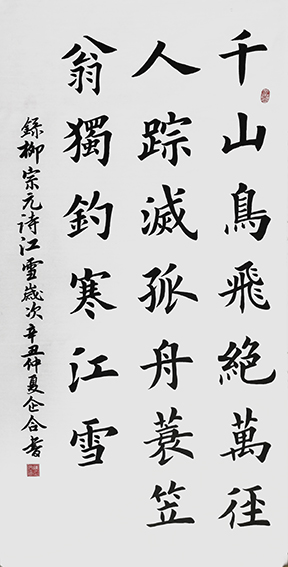 千山鳥飛絕萬徑
人踪滅孤舟蓑笠
翁獨釣寒江雪
錄柳宗元詩江雪歲次辛丑仲夏企合書